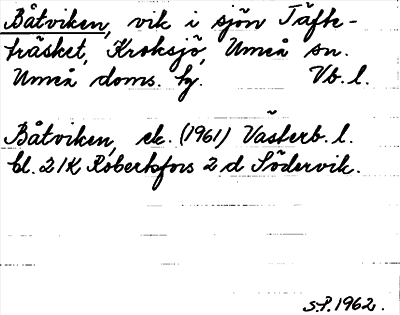 Båtviken, vik i sjön Täfte-
träsket, Kroksjö, Umeå sn.
Umeå doms. hg. Vb. l.
Båtviken, ek. (1961) Västerb. l.
bl. 21K Robertsfors 2 d Södervik.
S.P. 1962.